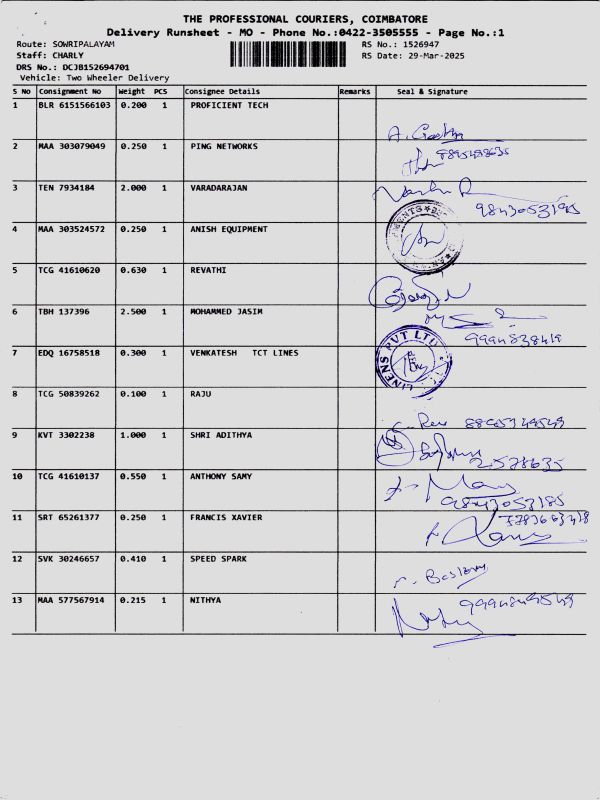 THE PROFESSIONAL COURIERS, COIMBATORE
Delivery Runsheet - MO - Phone No.:0422-3505555 - Page No.:1
Route: SOWRIPALAYAM RS No.: 1526947
Staff: CHARLY RS Date: 29-Mar-2025
DRS No.: DCJB152694701
Vehicle: Two Wheeler Delivery
S No Consignment No Weight PCS Consignee Details Remarks Seal & Signature
1 BLR 6151566103 0.200 1 PROFICIENT TECH
2 MAA 303079049 0.250 1 PING NETWORKS
3 TEN 7934184 2.000 1 VARADARAJAN
4 MAA 303524572 0.250 1 ANISH EQUIPMENT
5 TCG 41610620 0.630 1 REVATHI
6 TBH 137396 2.500 1 MOHAMMED JASIM
7 EDQ 16758518 0.300 1 VENKATESH TCT LINES
LINENS PVT LTD
8 TCG 50839262 0.100 1 RAJU
9 KVT 3302238 1.000 1 SHRI ADITHYA
10 TCG 41610137 0.550 1 ANTHONY SAMY
11 SRT 65261377 0.250 1 FRANCIS XAVIER
12 SVK 30246657 0.410 1 SPEED SPARK
13 MAA 577567914 0.215 1 NITHYA